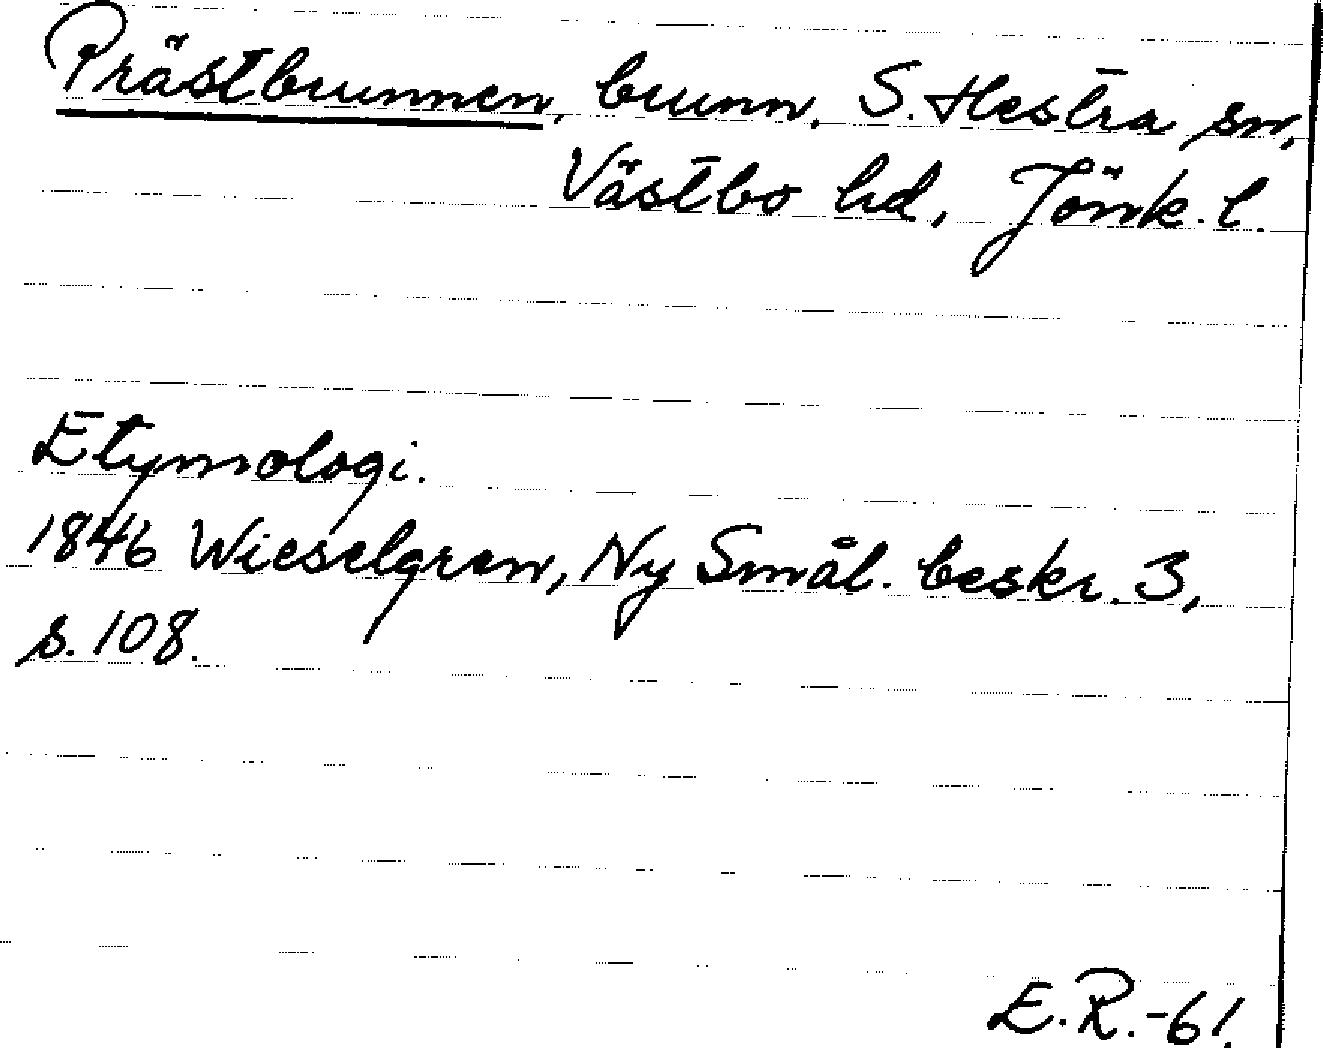 Prästbrunnen, brunn. S. Hestra sn,
Västbo hd, Jönk. l.
Etymologi.
1846 Wieselgren, Ny Smål. beskr. 3,
s. 108.
E.R.-61.